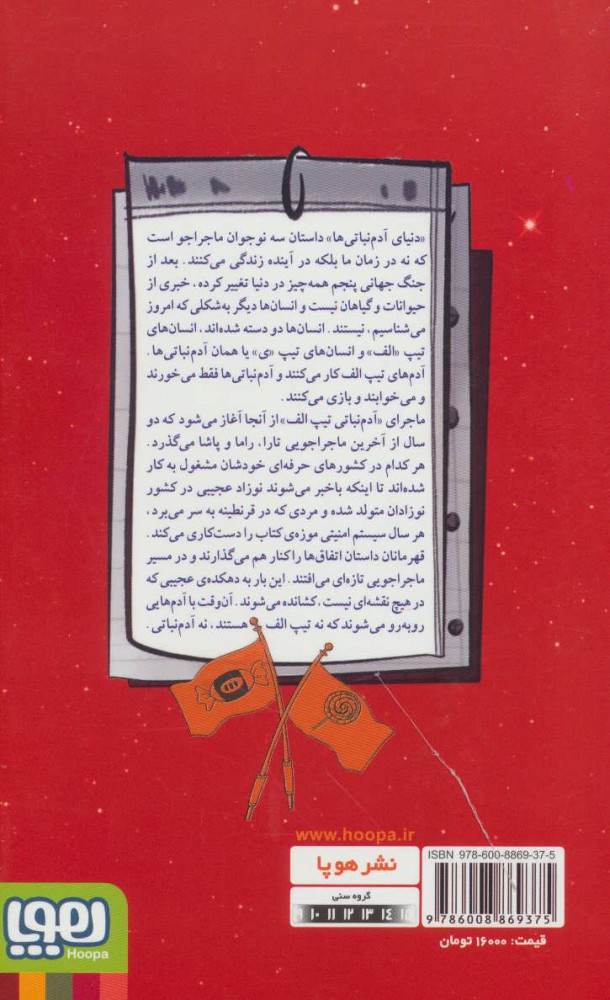 «دنیای آدم‌نباتی‌ها» داستان سه نوجوان ماجراجو است
که نه در زمان ما بلکه در آینده زندگی می‌کنند. بعد از
جنگ جهانی پنجم همه‌چیز در دنیا تغییر کرده، خبری از
حیوانات و گیاهان نیست و انسان‌ها دیگر به‌شکلی که امروز
می‌شناسیم، نیستند. انسان‌ها دو دسته شده‌اند، انسان‌های
تیپ «الف» و انسان‌های تیپ «ی» یا همان آدم‌نباتی‌ها.
آدم‌های تیپ الف کار می‌کنند و آدم‌نباتی‌ها فقط می‌خورند
و می‌خوابند و بازی می‌کنند.
ماجرای «آدم‌نباتی تیپ الف» از آنجا آغاز می‌شود که دو
سال از آخرین ماجراجویی تارا، راما و پاشا می‌گذرد.
هر کدام در کشورهای حرفه‌ای خودشان مشغول به کار
شده‌اند تا اینکه باخبر می‌شوند نوزاد عجیبی در کشور
نوزادان متولد شده و مردی که در قرنطینه به سر می‌برد،
هر سال سیستم امنیتی موزه‌ی کتاب را دست‌کاری می‌کند.
قهرمانان داستان اتفاق‌ها را کنار هم می‌گذارند و در مسیر
ماجراجویی تازه‌ای می‌افتند. این بار به دهکده‌ی عجیبی که
در هیچ نقشه‌ای نیست، کشانده می‌شوند. آن‌وقت با آدم‌هایی
روبه‌رو می‌شوند که نه تیپ الف هستند، نه آدم‌نباتی.
www.hoopa.ir
نشر هوپا
گروه سنی
۹ ۱۰ ۱۱ ۱۲ ۱۳ ۱۴ ۱۵
ISBN 978-600-8869-37-5
9 786008 869375
قیمت: ۱۶۰۰۰ تومان
هوپا
Hoopa